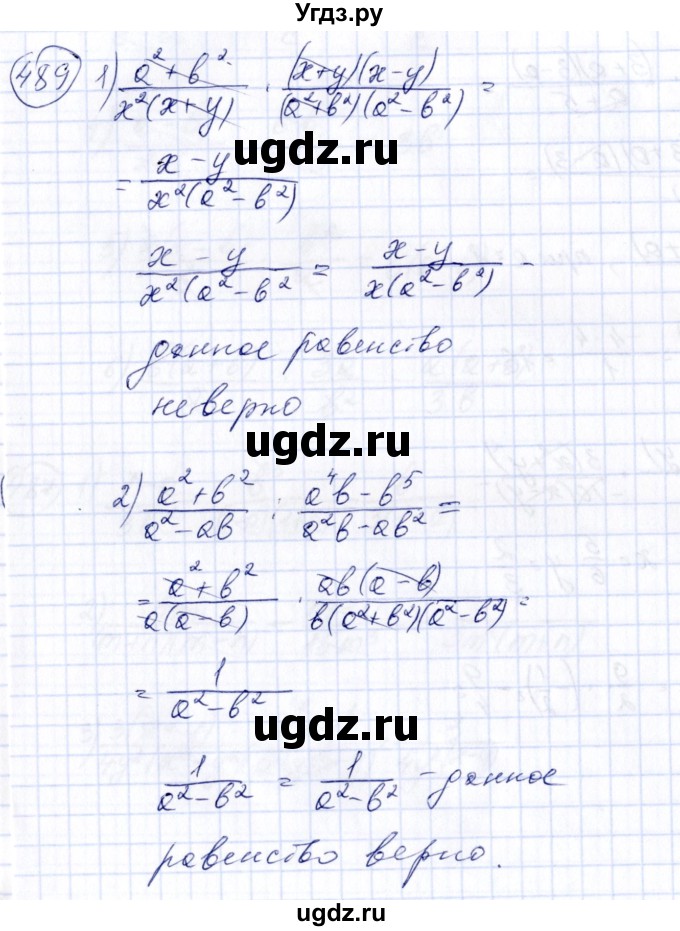 Угдз.ру
489 1) (a² + b²)/(x²(x+y)) · ((x+y)(x-y))/((a²+b²)(a²-b²)) =
= (x - y)/(x²(a²-b²))
(x - y)/(x²(a²-b²) = (x-y)/(x(a²-b²)) -
данное равенство
неверно
ugdz.ru
ugdz.ru
2) (a²+b²)/(a²-ab) : (a⁴b-b⁵)/(a²b-ab²) =
= (a²+b²)/(a(a-b)) · (ab(a-b))/(b(a²+b²)(a²-b²)) =
= 1/(a²-b²)
ugdz.ru
1/(a²-b²) = 1/(a²-b²) - данное
равенство верно.
ugdz.ru